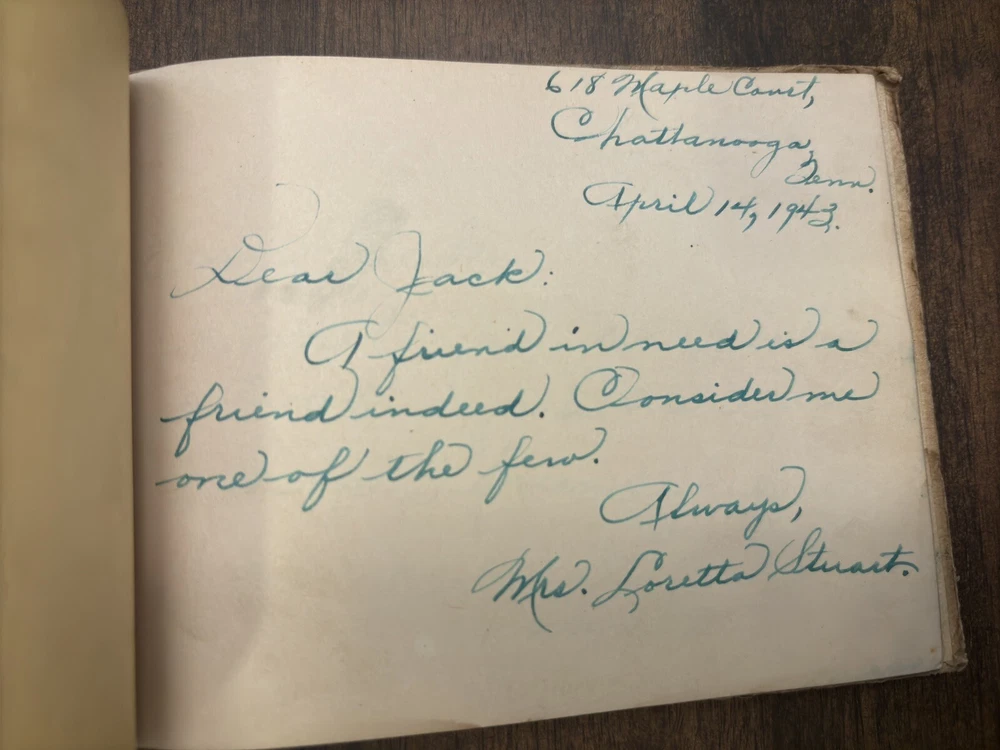 618 Maple Court,
Chattanooga,
Tenn.
April 14, 1943.
Dear Jack:
A friend in need is a
friend indeed. Consider me
one of the few.
Always,
Mrs. Loretta Stuart.